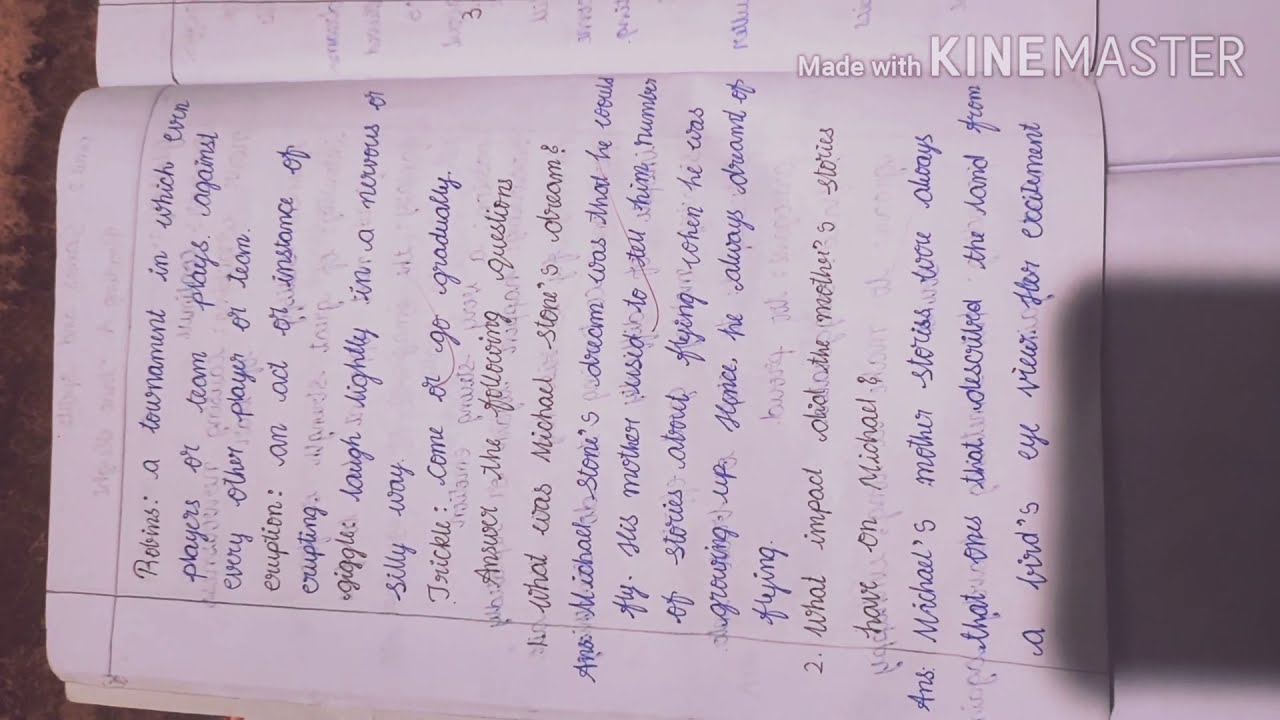 Robins: a tournament in which even
players or team plays. against
every other player or team.
eruption: an act or instance of
erupting.
giggle laugh lightly in a nervous or
silly way.
Trickle: come or go gradually.
Answer the following questions
what was Michael stone's dream?
Ans: Michael stone's dream was that he could
fly. His mother used to tell him number
of stories about flying when he was
growing up. Hence he always dreamd of
flying.
2. What impact did the mother's stories
have on Michael?
Ans: Michael's mother storiss were always
that ons that described the land from
a bird's eye view after excitement
Made with KINEMASTER